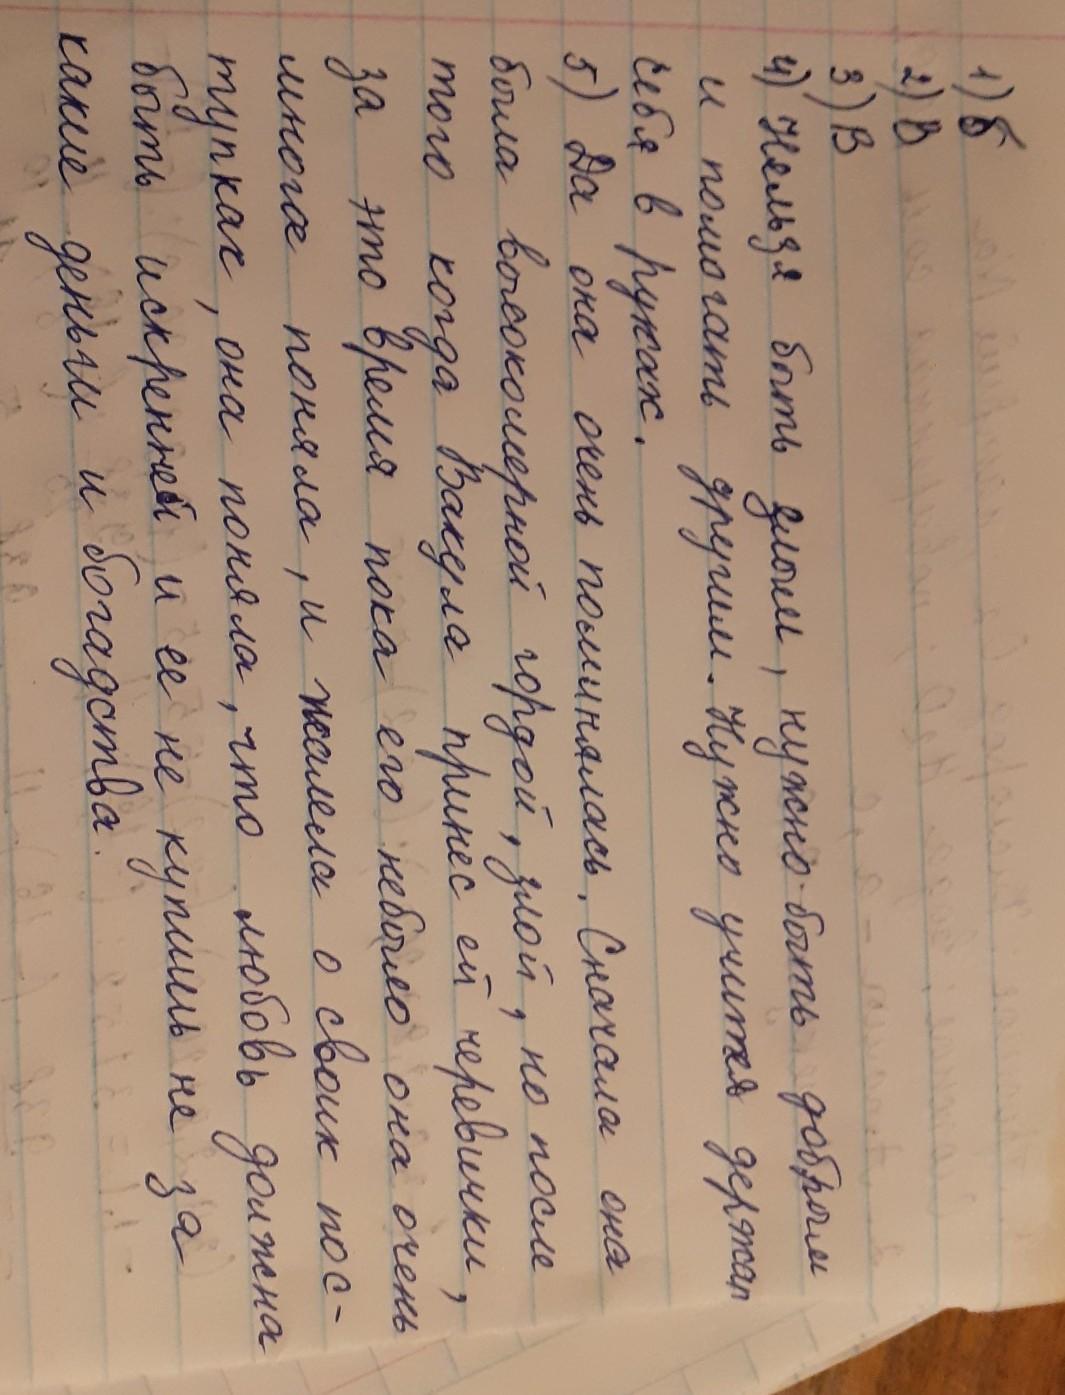 1) б
2) В
3) В
4) Нельзя быть злым, нужно быть добрым
и помогать другим. Нужно учится держат
себя в руках.
5) Да она очень поминялась. Сначала она
была высокомерной гордой, злой, но после
того когда Вакула принес ей черевички,
за это время пока его небыло она очень
многое поняла, и жалела о своих пос-
тупках, она поняла, что любовь должна
быть искренней и ее не купишь не за
какие деньги и богадства.